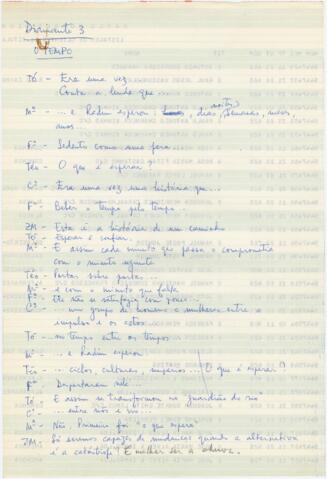 Diamante 3
O TEMPO
Tó: - Era uma vez
Conta a lenda que ...
Mª - ... e Radin esperou, dias, noites, semanas, meses,
anos...
Fª - Sedento como uma fera.
Téo - O que é esperar?
Cª - Era uma vez uma história que...
Fª - Bebeu o tempo pelo tempo.
ZM - Esta é a história de um caminho
Tó - Esperar e confiar.
Mª - E assim cada minuto que passa o compromete
com o minuto seguinte
Téo - Portas sobre portas...
Mª - e com o minuto que falta
Fª - Ele não se satisfazia com pouco...
Cª - um grupo de homens e mulheres entre o
impulso e os
Tó - no tempo entre os tempos...
Mª - ... e Radin esperou
Téo - ... ciclos, culturas, impérios... O que é esperar?
Fª - Despertaram nele...
Tó - E assim se transformou no guardião do rio
Cª - ... entre nós e
Mª - Não. Primeiro foi "o que espera"
ZM - Só seremos capazes de mudanças quando a alternativa
é a catástrofe? E melhor ser a